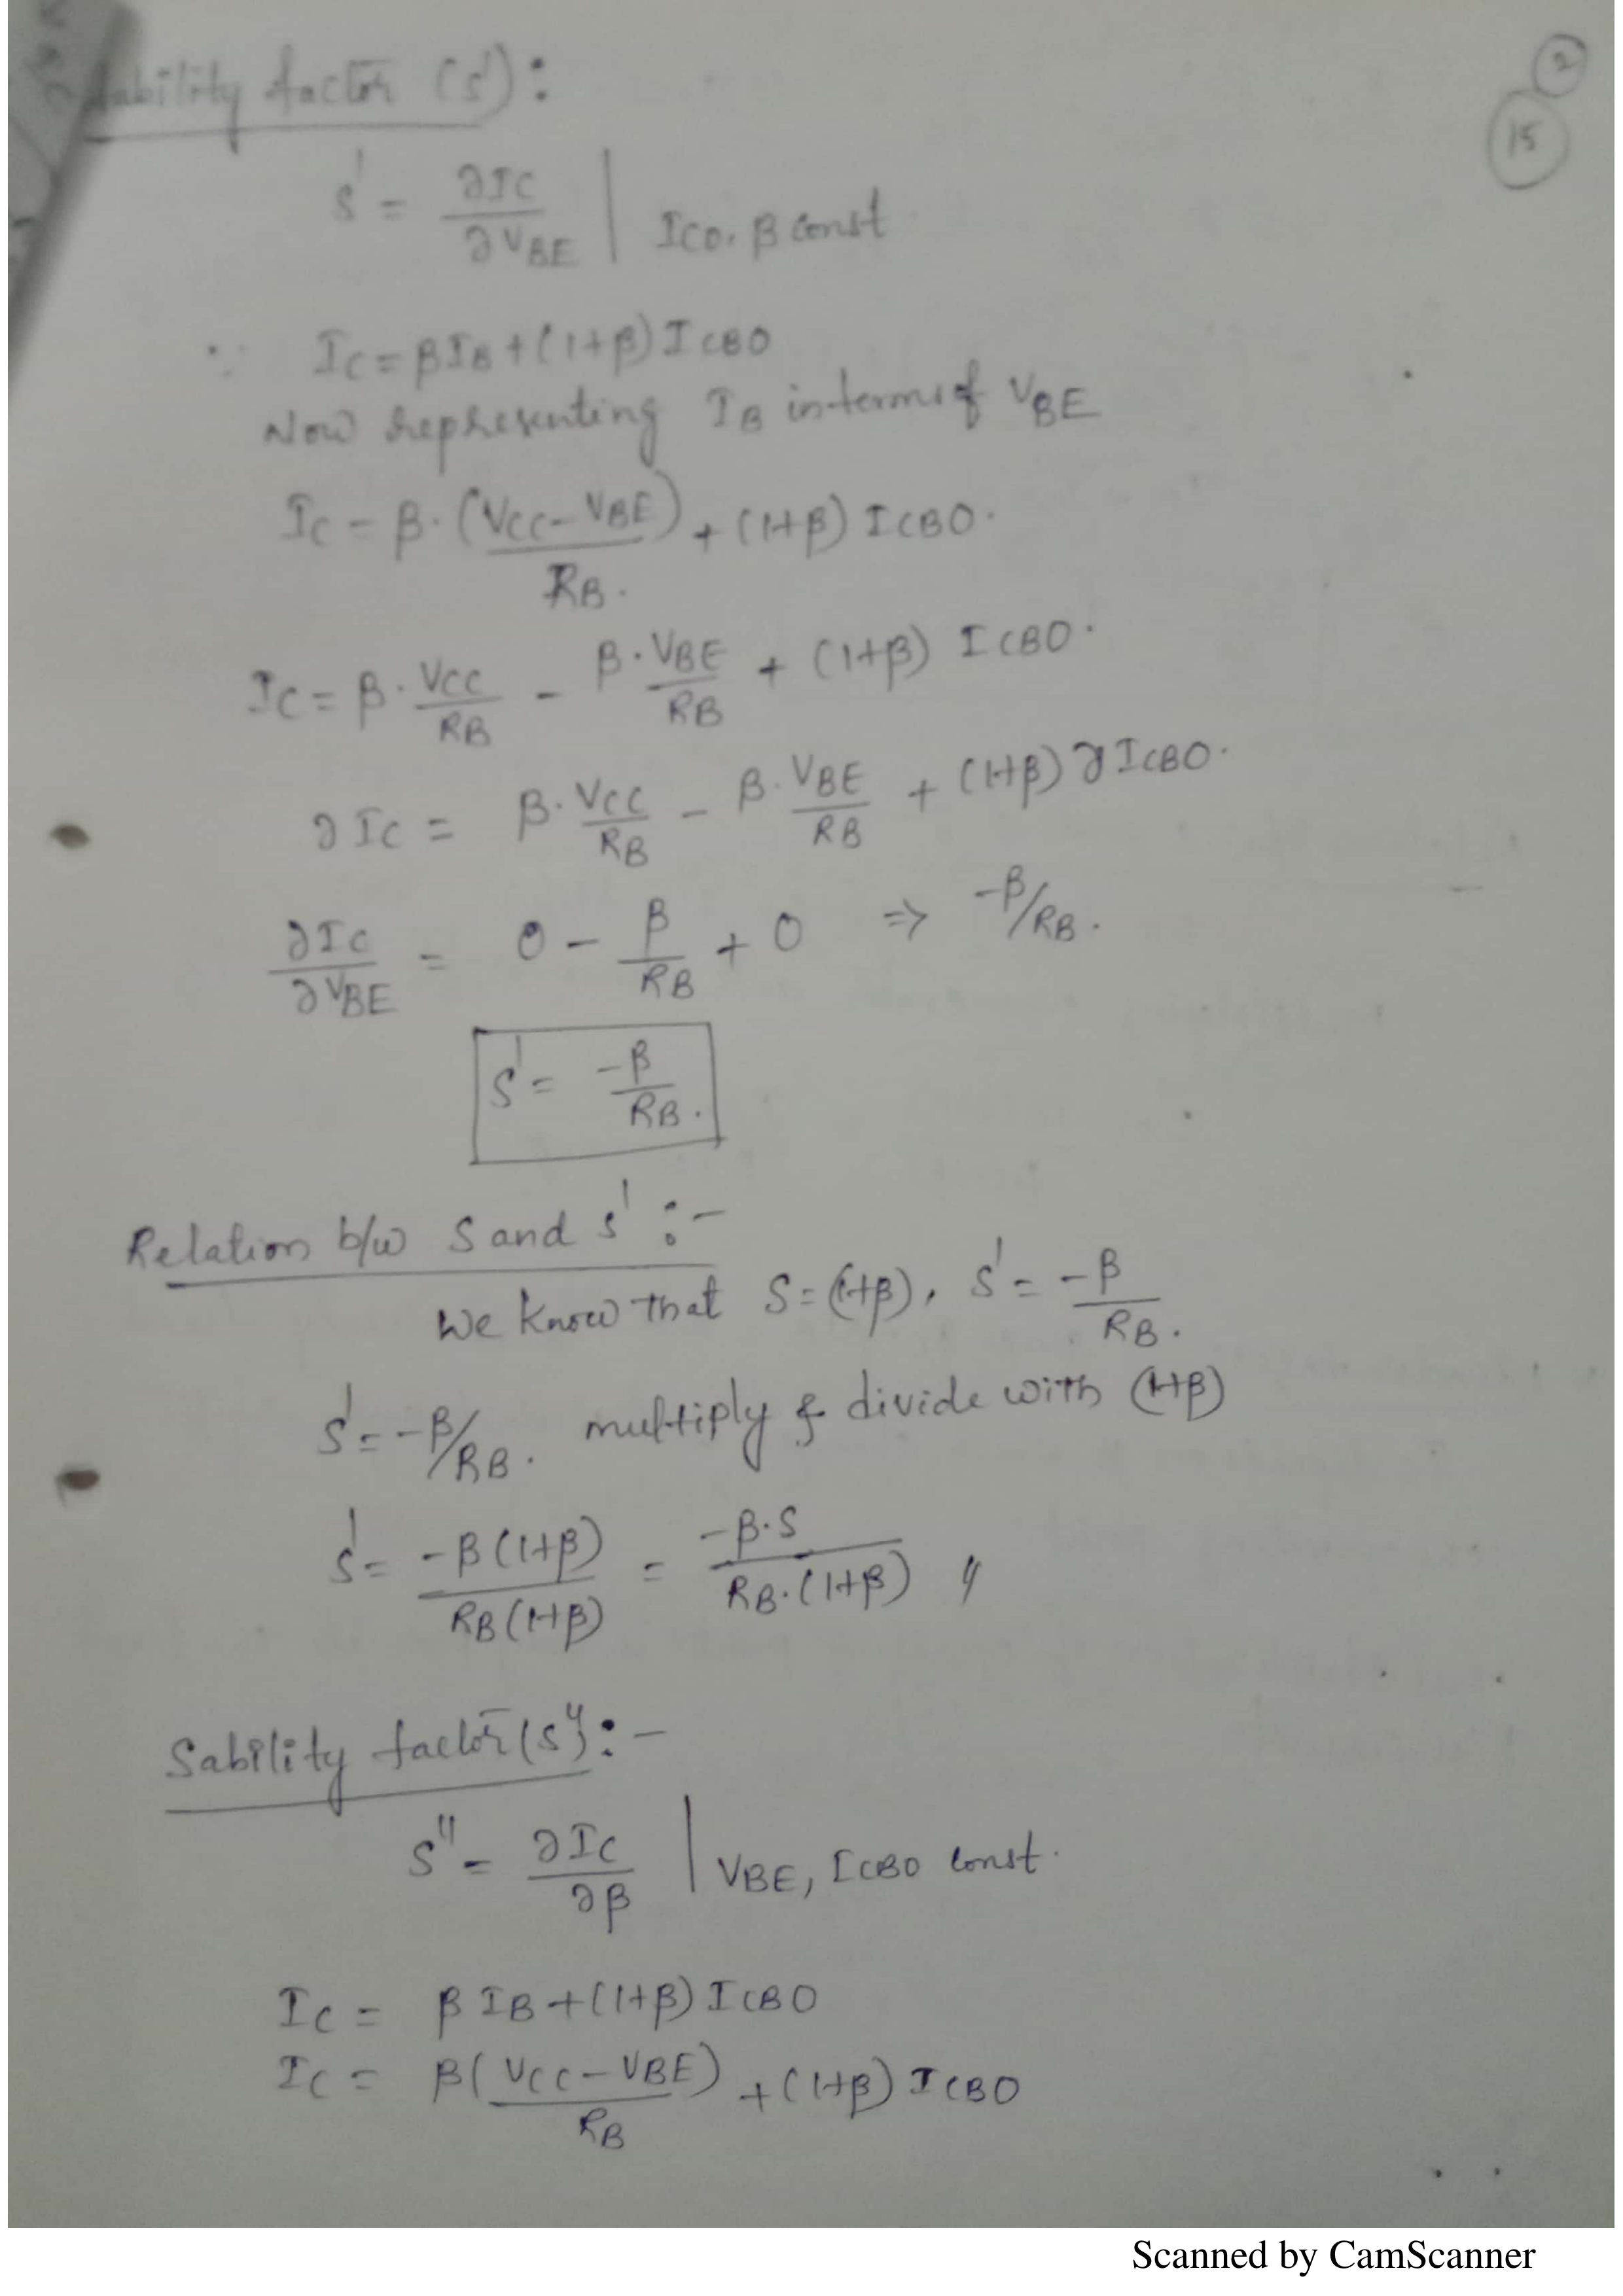 Stability factor (S'):
2
15
S' = ∂IC/∂VBE | ICO, β const
∵ IC = βIB + (1+β) ICBO
Now representing IB interms of VBE
IC = β·(VCC-VBE)/RB. + (1+β) ICBO.
IC = β·VCC/RB - β·VBE/RB + (1+β) ICBO.
∂IC = β·VCC/RB - β·VBE/RB + (1+β) ∂ICBO.
∂IC/∂VBE = 0 - β/RB + 0 ⇒ -β/RB.
S' = -β/RB.
Relation b/w S and S' :-
We know that S=(1+β), S' = -β/RB.
S' = -β/RB. multiply & divide with (1+β)
S' = -β(1+β)/RB(1+β) = -β·S/RB·(1+β) //
Sability factor (S''):-
S'' = ∂IC/∂β | VBE, ICBO const.
IC = β IB + (1+β) ICBO
IC = β(VCC-VBE)/RB + (1+β) ICBO
Scanned by CamScanner